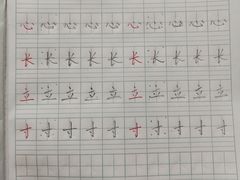 心 心 心 心 心 心 心 心 心 心
长 长 长 长 长 长 长 长 长 长
立 立 立 立 立 立 立 立 立 立
寸 寸 寸 寸 寸 寸 寸 寸 寸 寸